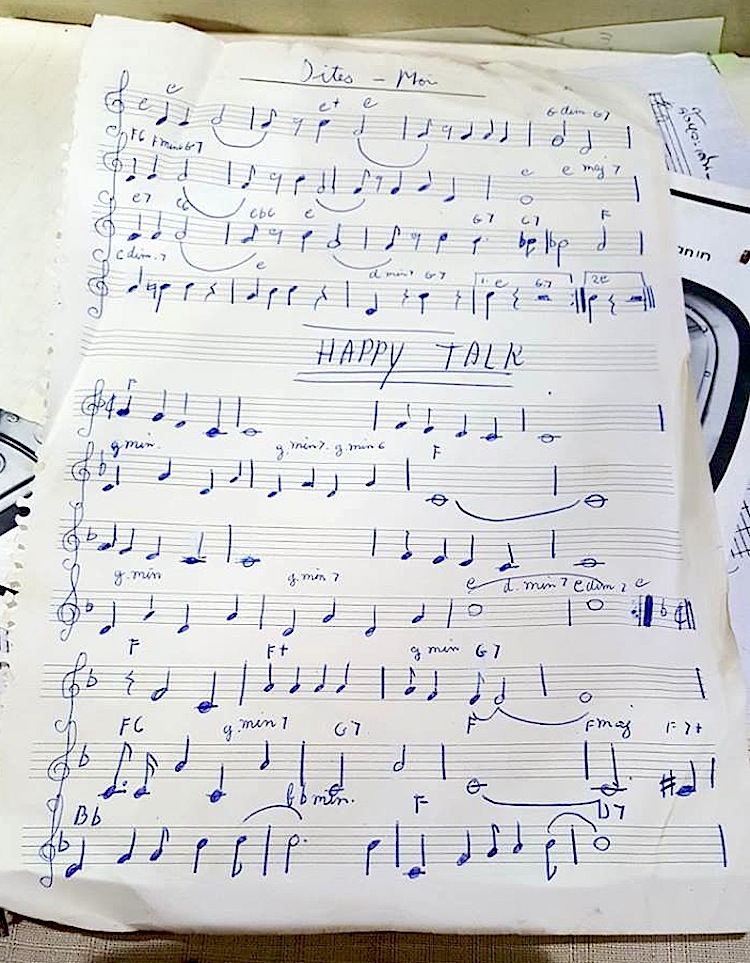 Dites - Moi
c c+ c G dim G7
F6 F min G7 c c maj 7
c7 c6 cb6 c G7 C7 F
c dim. 7 c d min 7 G7 1. c G7 2. c
HAPPY TALK
g min. g. min 7. g. min 6 F
g. min g. min 7 c d. min 7 c dim 7 c
F F+ g min G7
F6 g. min 7 G7 F F maj F 7+
Bb Bb min. F D7